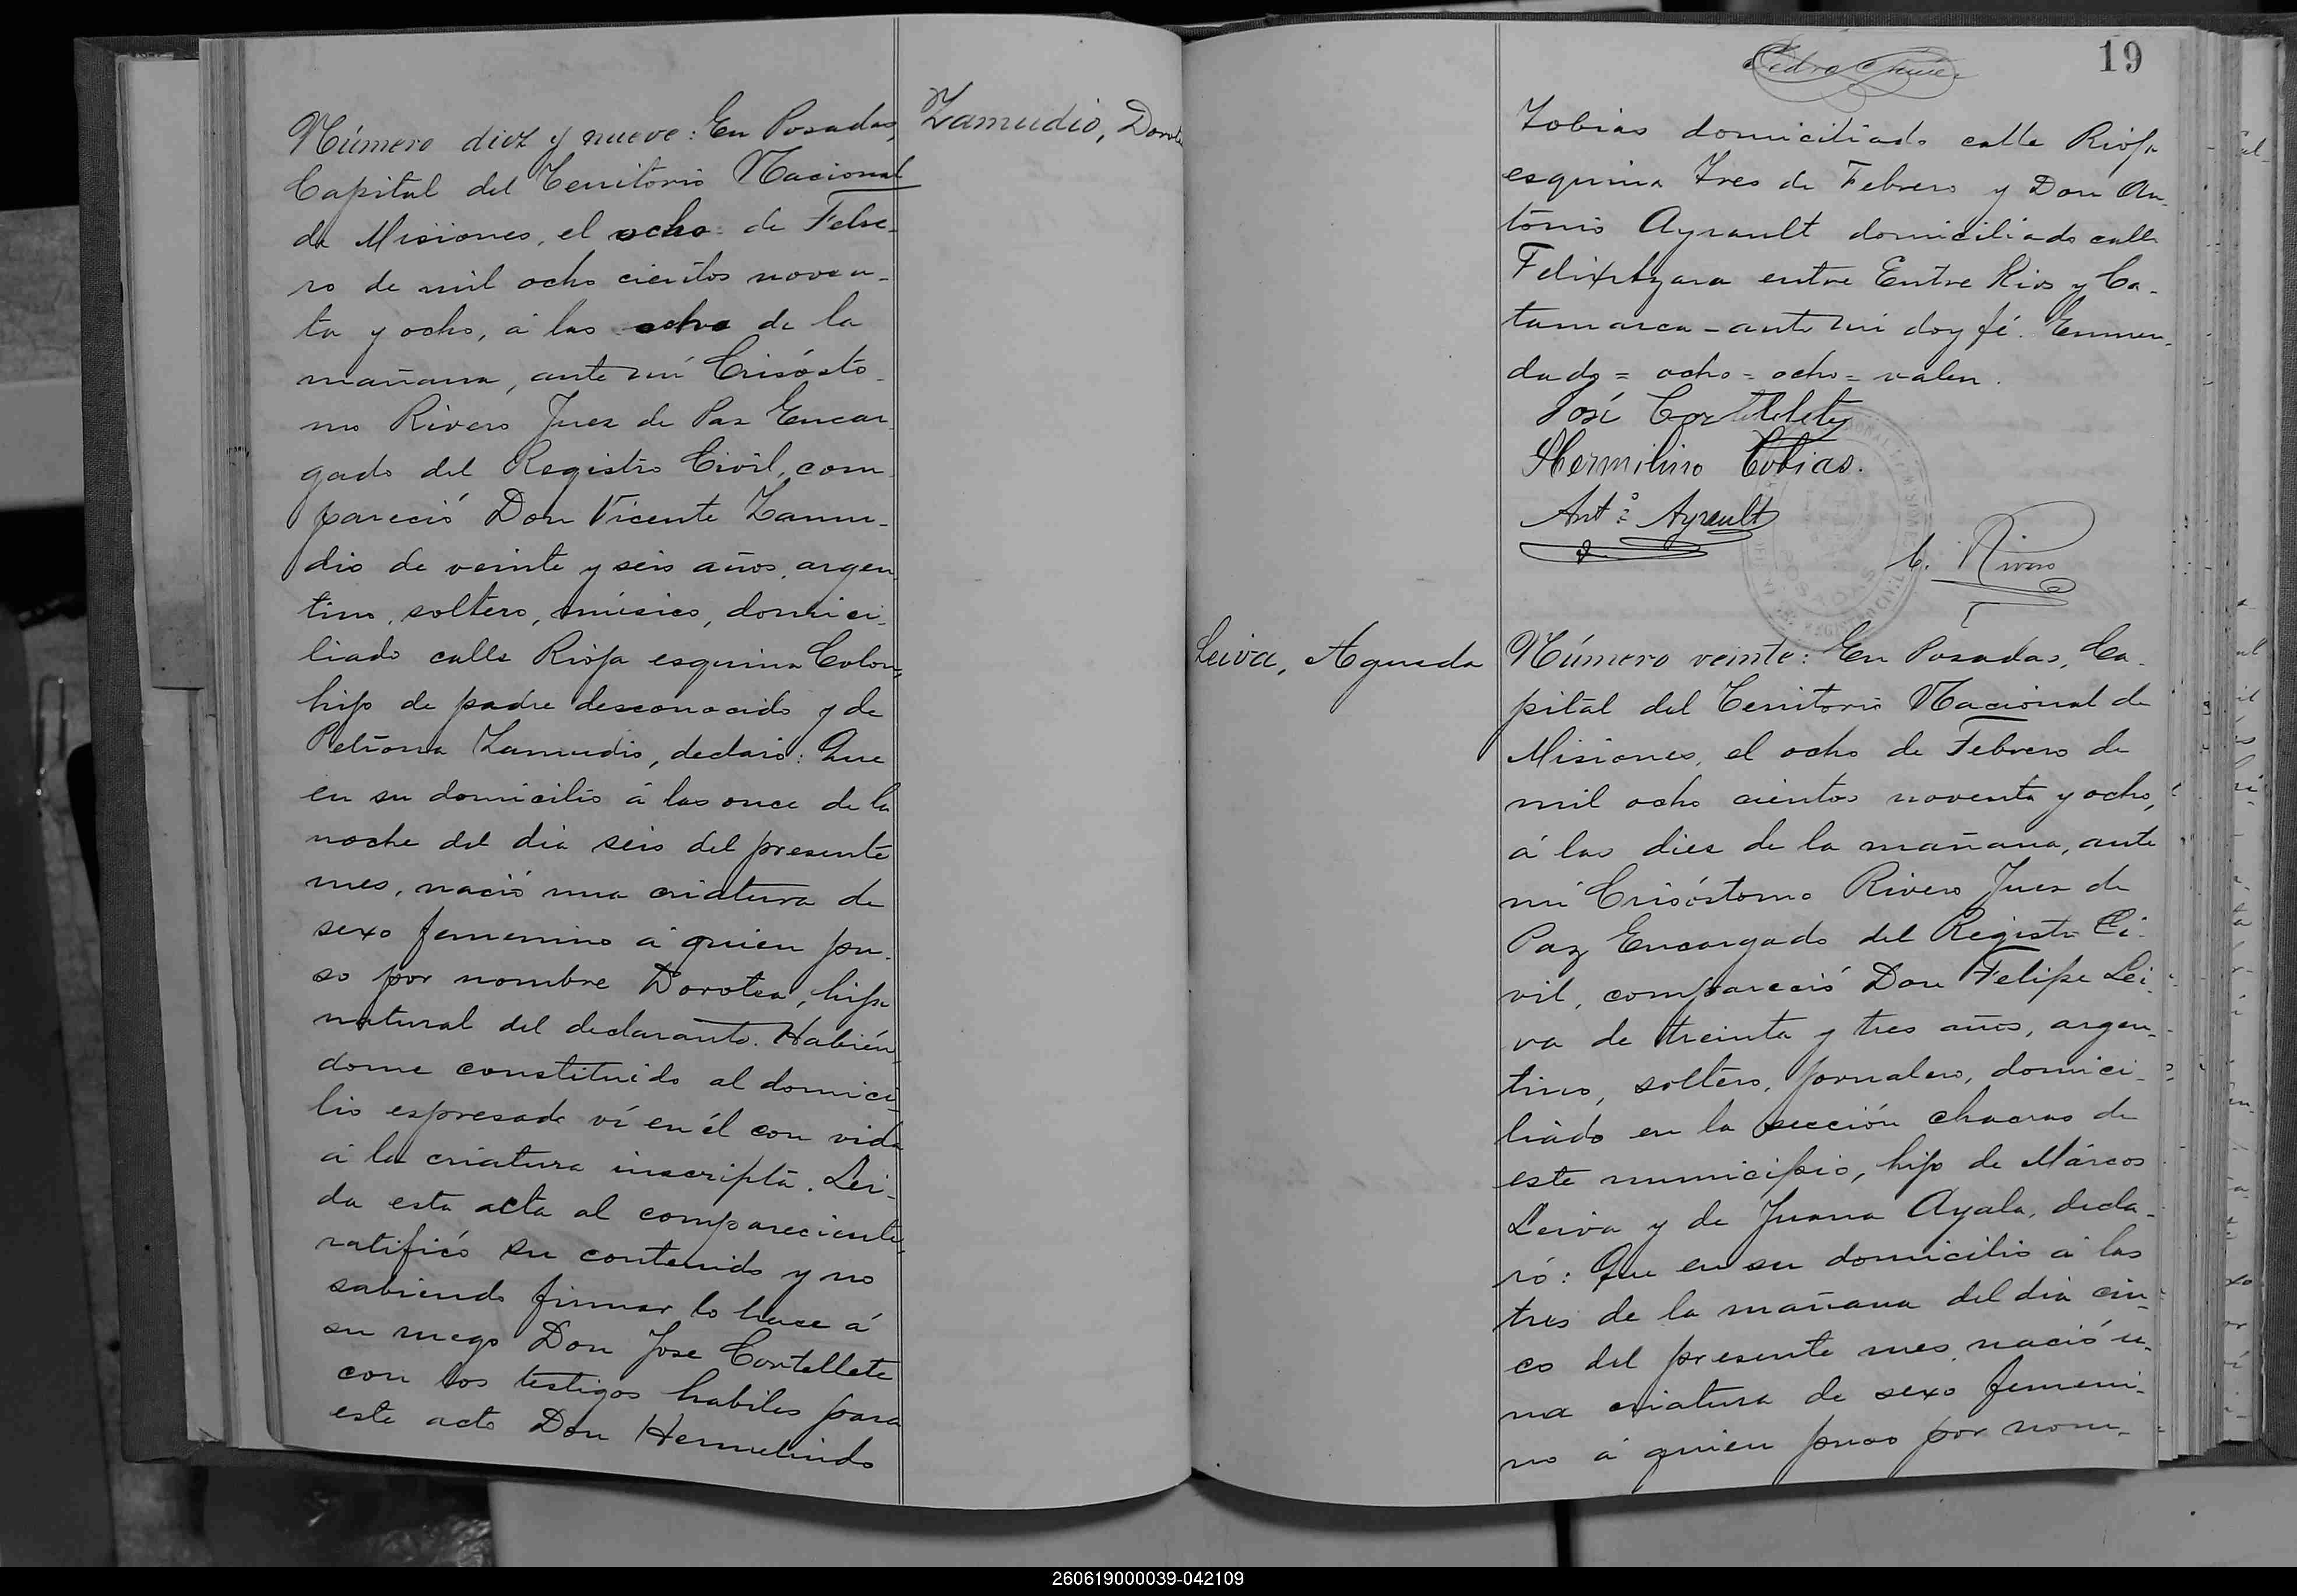 Número diez y nueve: En Posadas,
Capital del Territorio Nacional
de Misiones, el ocho de Febre-
ro de mil ocho cientos noven-
ta y ocho, á las ocho de la
mañana, ante mí Crisósto-
mo Rivero Juez de Paz Encar
gado del Registro Civil, com
pareció Don Vicente Zamu-
dio de veinte y seis años, argen
tino, soltero, músico, domici-
liado calle Rioja esquina Colon,
hijo de padre desconocido y de
Petrona Zamudio, declaró: Que
en su domicilio á las once de la
noche del dia seis del presente
mes, nació una criatura de
sexo femenino á quien pu-
so por nombre Dorotea, hija
natural del declarante. Habién
dome constituido al domici-
lio espresado ví en él con vida
á la criatura inscripta. Lei-
da esta acta al compareciente,
ratificó su contenido y no
sabiendo firmar lo hace á
su ruego Don Jose Cortellete
con los testigos habiles para
este acto Don Hermelindo
Zamudio, Dorote
19
Tobias domiciliado calle Rioja
esquina Tres de Febrero y Don An-
tonio Ayrault domiciliado calle
Felix Azara entre Entre Rios y Ca-
tamarca - ante mi doy fé. Enmen-
dado = ocho = ocho = valen.
José Cortellety
Hermilino Tobias.
Ant.º Ayrault
C. Rivero
Leiva, Agueda
Número veinte: En Posadas, Ca-
pital del Territorio Nacional de
Misiones, el ocho de Febrero de
mil ocho cientos noventa y ocho,
á las diez de la mañana, ante
mi Crisóstomo Rivero Juez de
Paz Encargado del Registro Ci-
vil, compareció Don Felipe Lei-
va de treinta y tres años, argen-
tino, soltero, jornalero, domici-
liado en la sección chacras de
este municipio, hijo de Márcos
Leiva y de Juana Ayala, decla-
ró: Que en su domicilio á las
tres de la mañana del dia cin-
co del presente mes, nació u-
na criatura de sexo femeni-
no á quien puso por nom-
260619000039-042109